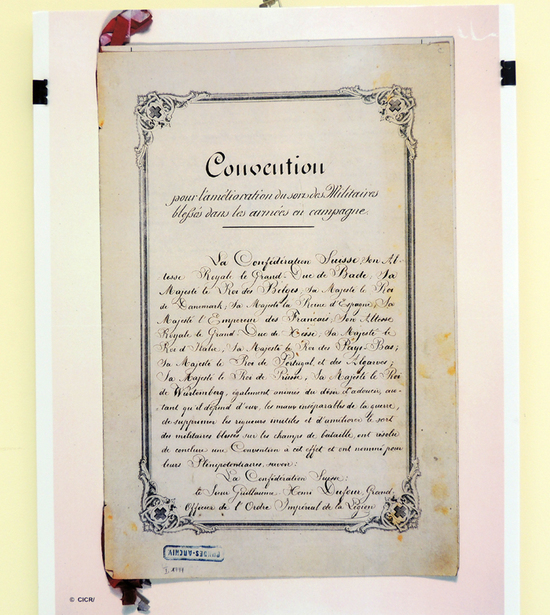 Convention
pour l'amélioration du sort des Militaires
blessés dans les armées en campagne.
La Confédération Suisse, Son Al-
tesse Royale le Grand-Duc de Bade, Sa
Majesté le Roi des Belges, Sa Majesté le Roi
de Danemark, Sa Majesté la Reine d'Espagne, Sa
Majesté l'Empereur des Français, Son Altesse
Royale le Grand Duc de Hesse, Sa Majesté le
Roi d'Italie, Sa Majesté le Roi des Pays-Bas,
Sa Majesté le Roi de Portugal et des Algarves,
Sa Majesté le Roi de Prusse, Sa Majesté le Roi
de Würtemberg, également animés du désir d'adoucir, au-
tant qu'il dépend d'eux, les maux inséparables de la guerre,
de supprimer les rigueurs inutiles et d'améliorer le sort
des militaires blessés sur les champs de bataille, ont résolu
de conclure une Convention à cet effet et ont nommé pour
leurs Plénipotentiaires, savoir:
La Confédération Suisse:
le Sieur Guillaume Henri Dufour, Grand
Officier de l'Ordre Impérial de la Légion
BUNDES-ARCHIV
© CICR/